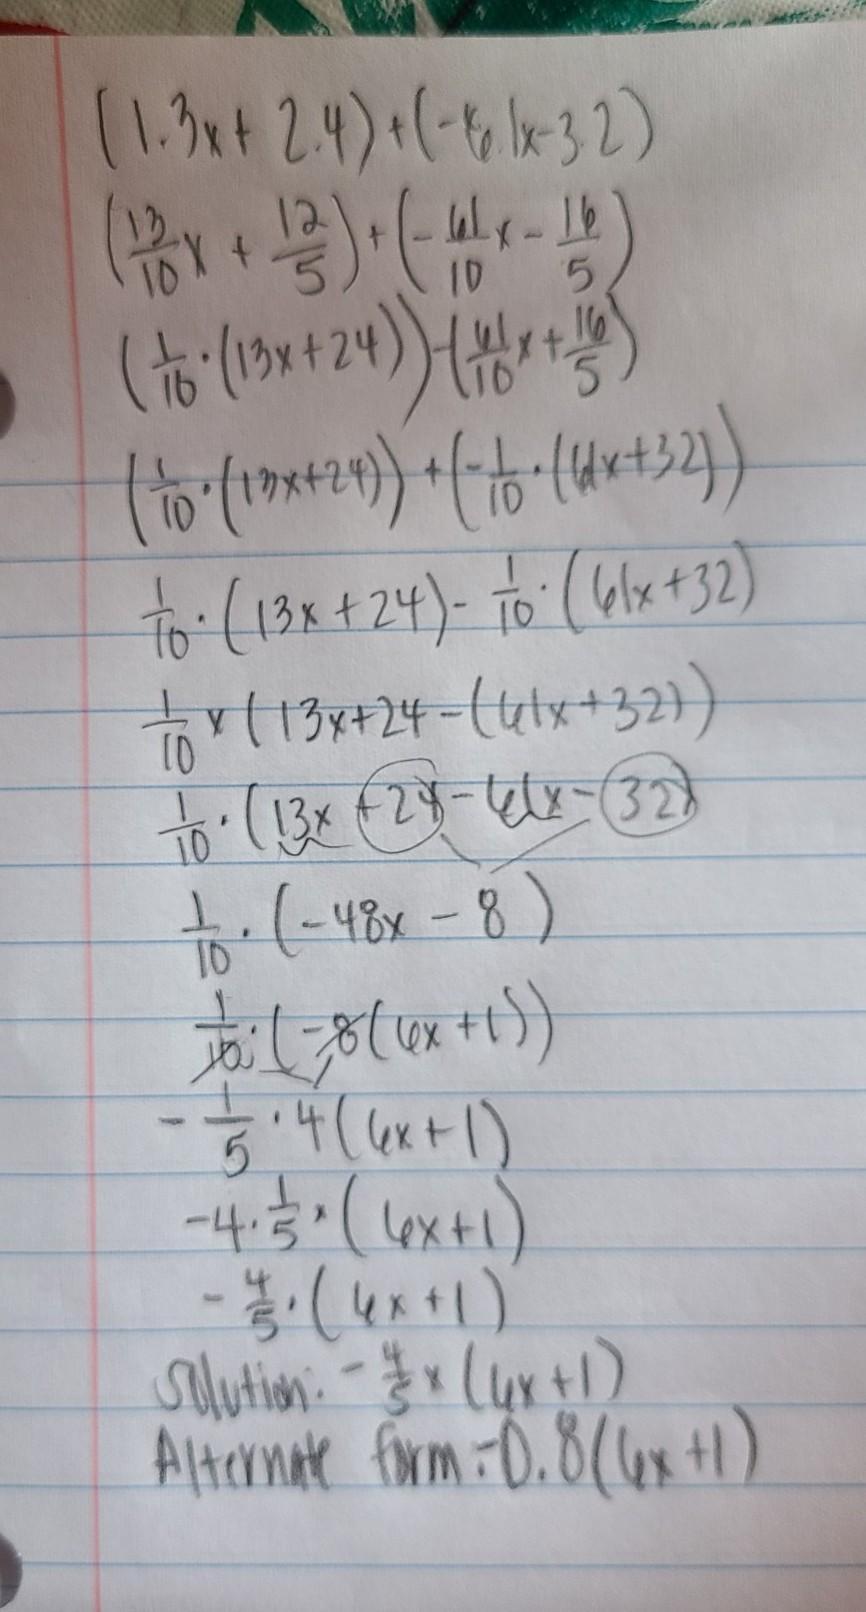 (1.3x + 2.4) + (-6.1x-3.2)
(13/10 x + 12/5) + (-61/10 x - 16/5)
(1/10 · (13x+24)) - (61/10 x + 16/5)
(1/10 · (13x+24)) + (-1/10 · (61x+32))
1/10 · (13x+24) - 1/10 · (61x+32)
1/10 × (13x+24-(61x+32))
1/10 · (13x +24 - 61x - 32)
1/10 · (-48x - 8)
1/10 · (-8(6x+1))
-1/5 · 4(6x+1)
-4 · 1/5 × (6x+1)
-4/5 · (6x+1)
Solution: -4/5 × (6x+1)
Alternate form: -0.8(6x+1)